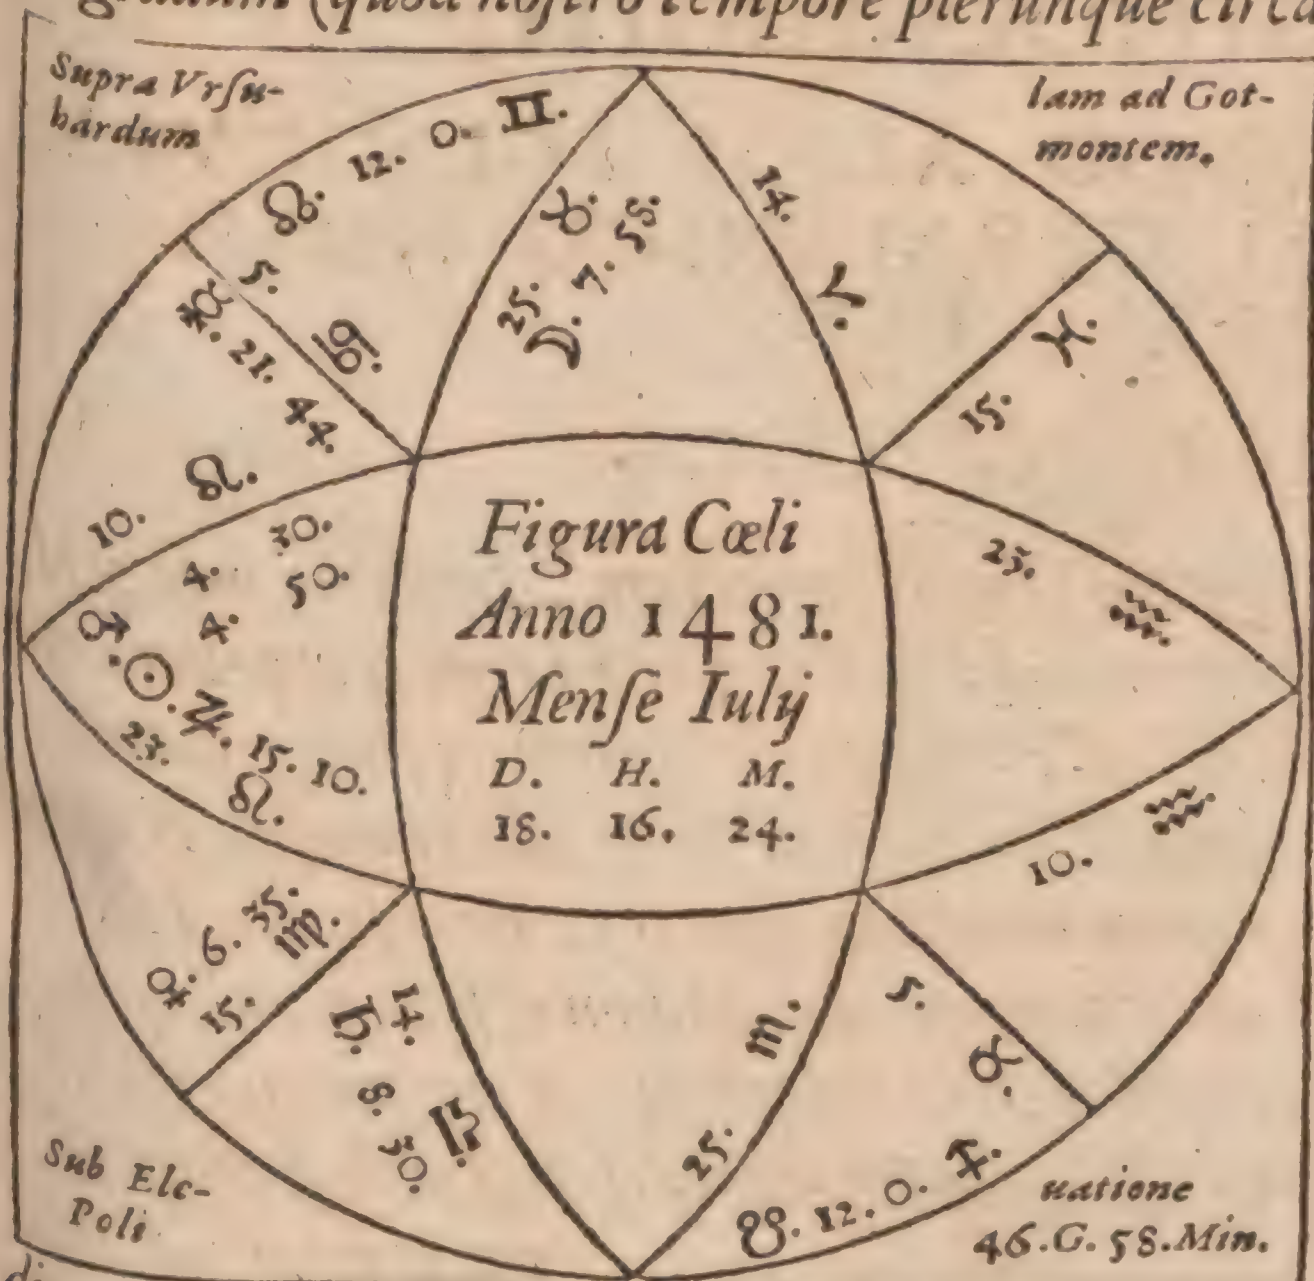 (quod nostro tempore plerunque circa
Supra Vrſu-
bardum
Iam ad Got-
montem.
☊. 12. 0. ♊.
5. ♋.
☿. 21. 44.
10. ♌.
♉. 25.
☽. 7. 55.
14. ♈.
15. ♓.
♂. 4. 30.
☉. 4. 50.
♃. 15. 10.
23. ♌.
Figura Cœli
Anno 1481.
Menſe Iulij
D. H. M.
18. 16. 24.
23. ♒.
10. ♒.
♀. 6. 35.
15. ♍.
14. ♎.
♄. 8. 30.
25. ♏.
5.
☋. 12. 0. ♐.
Sub Ele-
Poli
uatione
46.G. 58.Min.